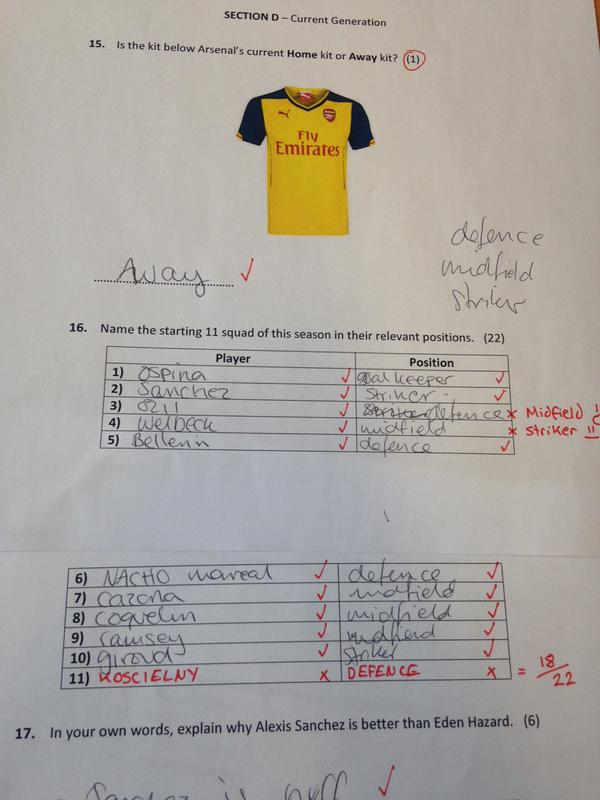 SECTION D – Current Generation
15. Is the kit below Arsenal's current Home kit or Away kit? (1)
Fly
Emirates
Away ✓
defence
midfield
striker
16. Name the starting 11 squad of this season in their relevant positions. (22)
Player Position
1) Ospina ✓ goalkeeper ✓
2) Sanchez ✓ Striker ✓
3) Ozil ✓ defence x Midfield !!
4) Welbeck ✓ midfield x striker !!
5) Bellerin ✓ defence ✓
6) NACHO monreal ✓ defence ✓
7) Cazorla ✓ midfield ✓
8) coquelin ✓ midfield ✓
9) ramsey ✓ midfield ✓
10) giroud ✓ Striker ✓
11) KOSCIELNY x DEFENCE x = 18/22
17. In your own words, explain why Alexis Sanchez is better than Eden Hazard. (6)
Sanchez is buff ✓